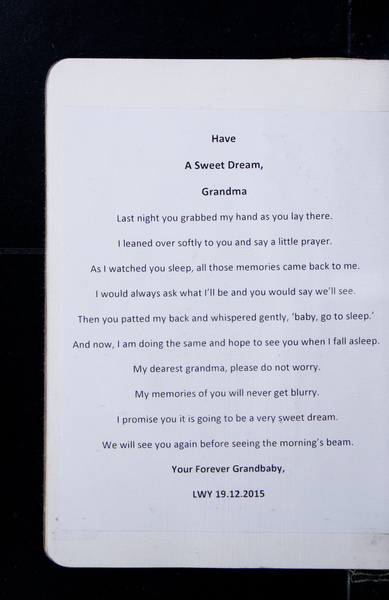 Have
A Sweet Dream,
Grandma
Last night you grabbed my hand as you lay there.
I leaned over softly to you and say a little prayer.
As I watched you sleep, all those memories came back to me.
I would always ask what I'll be and you would say we'll see.
Then you patted my back and whispered gently, 'baby, go to sleep.'
And now, I am doing the same and hope to see you when I fall asleep.
My dearest grandma, please do not worry.
My memories of you will never get blurry.
I promise you it is going to be a very sweet dream.
We will see you again before seeing the morning's beam.
Your Forever Grandbaby,
LWY 19.12.2015